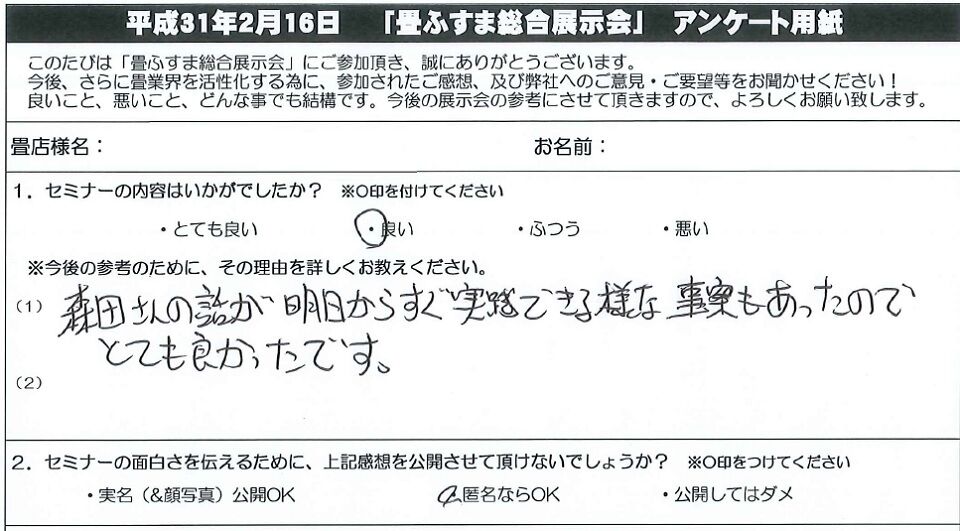 平成31年2月16日 「畳ふすま総合展示会」 アンケート用紙
このたびは「畳ふすま総合展示会」にご参加頂き、誠にありがとうございます。
今後、さらに畳業界を活性化する為に、参加されたご感想、及び弊社へのご意見・ご要望等をお聞かせください！
良いこと、悪いこと、どんな事でも結構です。今後の展示会の参考にさせて頂きますので、よろしくお願い致します。
畳店様名： お名前：
1．セミナーの内容はいかがでしたか？ ※○印を付けてください
・とても良い ・良い ・ふつう ・悪い
※今後の参考のために、その理由を詳しくお教えください。
（1） 森田さんの話が明日からすぐ実践できる様な事案もあったので
とても良かったです。
（2）
2．セミナーの面白さを伝えるために、上記感想を公開させて頂けないでしょうか？ ※○印をつけてください
・実名（&顔写真）公開OK ・匿名ならOK ・公開してはダメ